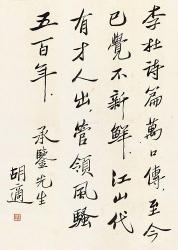 李杜詩篇萬口傳至今
已覺不新鮮江山代
有才人出管領風騷
五百年
承鑒先生
胡適